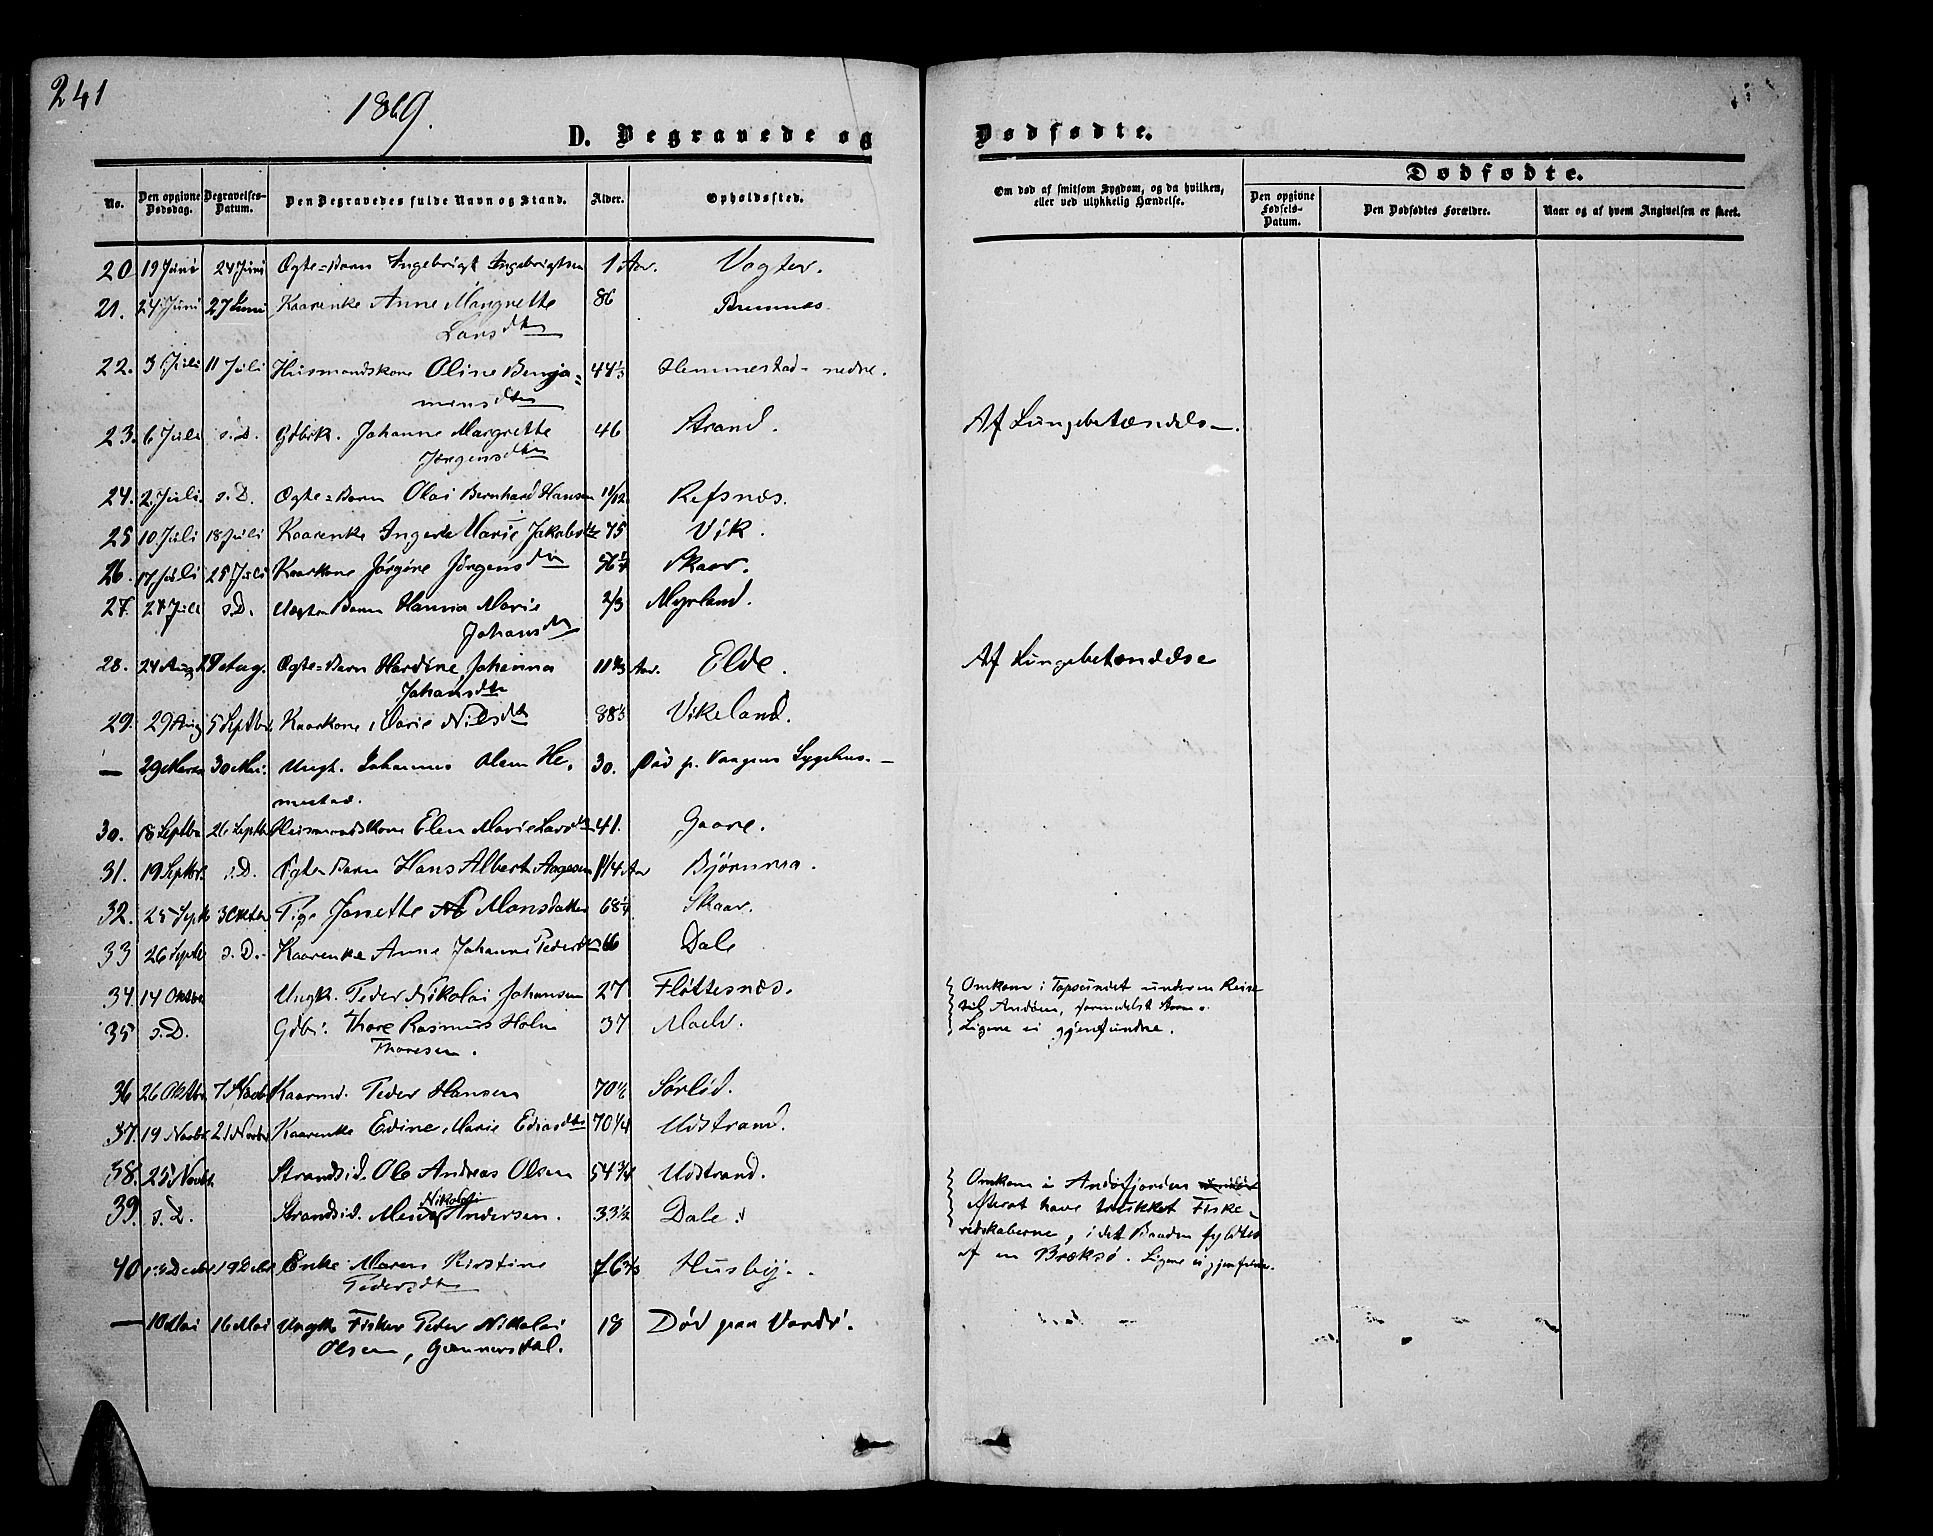 241
1869.
D. Begravede og
Dødfødte.
No.
Den opgivne Dødsdag.
Begravelses-Datum.
Den Begravedes fulde Navn og Stand.
Alder.
Opholdssted.
Om død af smitsom Sygdom, og da hvilken, eller ved ulykkelig Hændelse.
Dødfødte.
Den opgivne Fødsels-Datum.
Den Dødfødtes Forældre.
Naar og af hvem Angivelsen er skeet.
20 19 Juni 24 Juni Ægte=Barn Ingebrigt Ingebrigtsen 1 Aar. Vogter.
21. 24 Juni 27 Juni Kaarenke Anne Margrette 86 Bremnæs.
Larsdtr
22. 3 Juli 11 Juli Husmandskone Oline Benja= 44 1/3 Hemmestad- nedre.
minsdtr
23. 6 Juli s.D. Gdbrk. Johanne Margrette 46 Strand. Af Lungebetændelse.
Jørgensdtr
24. 2. Juli. s.D. Ægte=Barn Olai Bernhard Hansen 11/12. Refsnæs.
25 10. Juli 18 Juli Kaarenke Ingerd Marie Jakobsdtr 75 Vik.
26. 17 Juli 25 Juli Kaarkone Jørgine Jørgensdtr 56 1/4 Skaar.
27. 27 Juli s.D. Uægte Barn Hanna Marie 2/3 Myrland.
Johansdtr
28. 24 Aug 29 Aug. Ægte=Barn Hardine Johanna 11 2/3 Aar. Elde. Af Lungebetændelse
Johansdtr
29. 29 Aug 5 Septbr. Kaarkone Marie Nilsdtr 88 1/3 Vikeland.
— 29 Marts 30 Mai. Ungk. Johannes Olsen He, 30. Død p. Vaagens Sygehus. —
mestad.
30. 18 Septbr 26 Septbr Husmandskone Elen Marie Larsdtr 41. Gaare.
31. 19 Septbr. s.D. Ægte Barn Hans Albert Aagesen 1 1/4 Aar Bjørnnra.
32. 25 Septb 3 Oktbr Pige Janette Monsdatter 68 1/4 Skaar.
33 26 Septbr s.D.- Kaarenke Anne Johanna Pedersdtr 66 Dale
34. 14 Oktbr Ungk. Peder Nikolai Johansen 27 Fløttesnæs. Omkom i Topsundet under en Reise
35 s.D. Gdbr. Thore Rasmus Holm 37 Maelv. til Andøen, formedelst Storm.
Thoresen. Ligene ei gjenfundne.
36 26 Oktbr. 7 Novbr Kaarmd. Peder Hansen 70 1/2 Sørlid.
37. 19 Novbr. 21 Novbr Kaarenke Edine Marie Ediasdtr 70 1/4 Udstrand.
38. 25 Novbr. Strandsid. Ole Andreas Olsen 54 3/4 Udstrand. Omkom i Andøfjorden
39. s.D. Strandsid. Meier Nikolai Andersen. 33 1/2 Dale. efterat have trukket Fiske-
redskaberne, idet Baaden fyldtes
af en Bræksø. Ligene ei gjenfundne.
40 Decbr 19 Decbr Enke Maren Kirstine 76 2/3 Husby.
Pedersdtr
— 10 Mai 16 Mai Ungk. Fisker Peder Nikolai 18 Død paa Vardø.
Olsen, Gunnersdal.